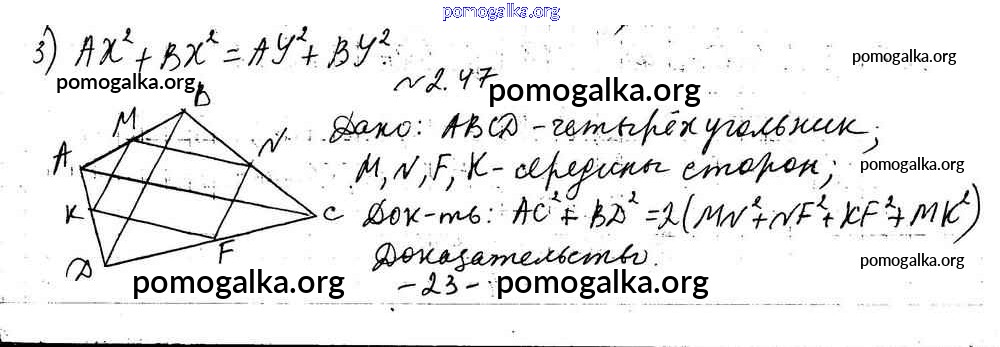 pomogalka.org
3) AX² + BX² = AY² + BY².
pomogalka.org
pomogalka.org
№2.47
pomogalka.org
B
M
N
A
K
C
F
D
Дано: ABCD - четырёхугольник;
M, N, F, K - середины сторон;
pomogalka.org
Док-ть: AC² + BD² = 2(MN² + NF² + KF² + MK²)
Доказательство.
pomogalka.org
pomogalka.org
-23-
pomogalka.org